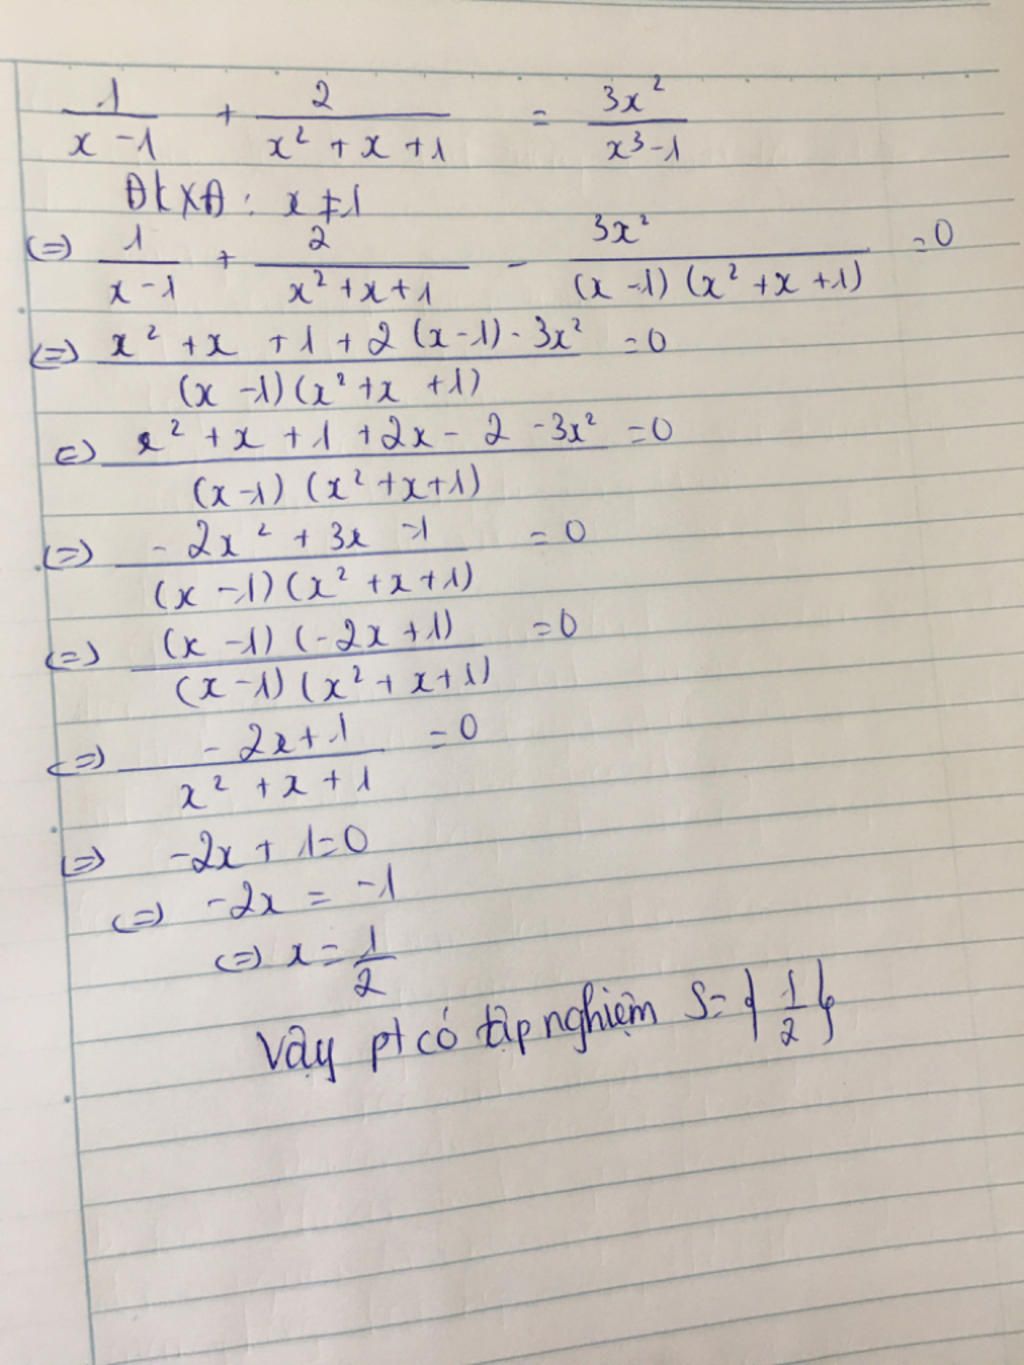 1/(x - 1) + 2/(x² + x + 1) = 3x²/(x³ - 1)
ĐKXĐ : x ≠ 1
(=) 1/(x - 1) + 2/(x² + x + 1) - 3x²/((x - 1)(x² + x + 1)) = 0
(=) (x² + x + 1 + 2(x - 1) - 3x²)/((x - 1)(x² + x + 1)) = 0
(=) (x² + x + 1 + 2x - 2 - 3x²)/((x - 1)(x² + x + 1)) = 0
(=) (- 2x² + 3x - 1)/((x - 1)(x² + x + 1)) = 0
(=) ((x - 1)(-2x + 1))/((x - 1)(x² + x + 1)) = 0
(=) (- 2x + 1)/(x² + x + 1) = 0
(=) -2x + 1 = 0
(=) -2x = -1
(=) x = 1/2
Vậy pt có tập nghiệm S = {1/2}